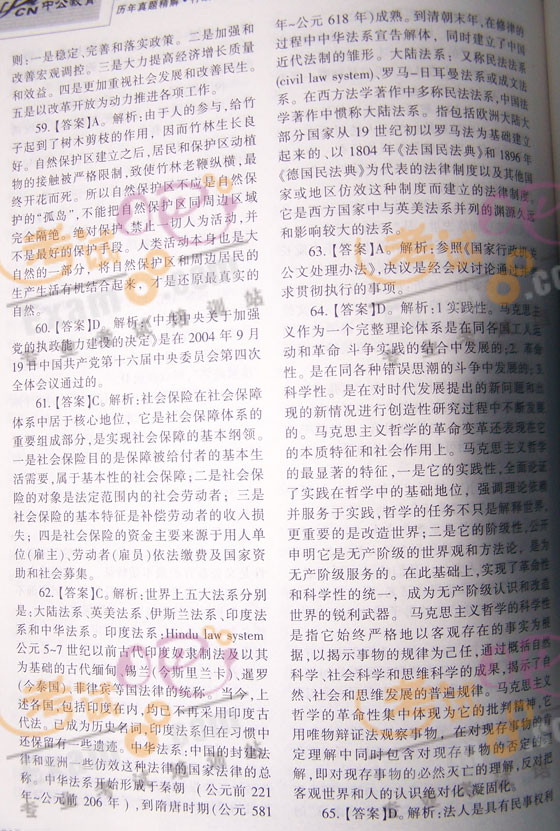 中公教育
历年真题精解·行
则：一是稳定、完善和落实政策。二是加强和
改善宏观调控。三是大力提高经济增长质量
和效益。四是更加重视社会发展和改善民生。
五是以改革开放为动力推进各项工作。
59.【答案】A。解析：由于人的参与，给竹
子起到了树木剪枝的作用，因而竹林生长良
好。自然保护区建立之后，居民和保护区动植
物的接触被严格限制，致使竹林老鞭纵横，最
终开花而死。所以自然保护区不应是自然保
护的“孤岛”，不能把自然保护区同周边区域
完全隔绝。绝对保护、禁止一切人为活动，并
不是最好的保护手段。人类活动本身也是大
自然的一部分，将自然保护区和周边居民的
生产生活有机结合起来，才是还原最真实的
自然。
60.【答案】D。解析：《中共中央关于加强
党的执政能力建设的决定》是在 2004 年 9 月
19 日中国共产党第十六届中央委员会第四次
全体会议通过的。
61.【答案】C。解析：社会保险在社会保障
体系中居于核心地位，它是社会保障体系的
重要组成部分，是实现社会保障的基本纲领。
一是社会保险目的是保障被给付者的基本生
活需要，属于基本性的社会保障；二是社会保
险的对象是法定范围内的社会劳动者；三是
社会保险的基本特征是补偿劳动者的收入损
失；四是社会保险的资金主要来源于用人单
位(雇主)、劳动者(雇员)依法缴费及国家资
助和社会募集。
62.【答案】C。解析：世界上五大法系分别
是：大陆法系、英美法系、伊斯兰法系、印度法
系和中华法系。印度法系：Hindu law system
公元5~7 世纪以前古代印度奴隶制法及以其
为基础的古代缅甸、锡兰(今斯里兰卡)、暹罗
(今泰国)、菲律宾等国法律的统称。当今，上
述各国，包括印度在内，均已不再采用印度古
代法，已成为历史名词，印度法系但在习惯中
还保留有一些遗迹。中华法系：中国的封建法
律和亚洲一些仿效这种法律的国家法律的总
称。中华法系开始形成于秦朝（公元前 221
年~公元前 206 年），到隋唐时期(公元 581
年~公元 618 年)成熟。到清朝末年，在修律的
过程中中华法系宣告解体，同时建立了中国
近代法制的雏形。大陆法系：又称民法法系
(civil law system)、罗马-日耳曼法系或成文法
系。在西方法学著作中多称民法法系，中国法
学著作中惯称大陆法系。指包括欧洲大陆大
部分国家从 19 世纪初以罗马法为基础建立
起来的、以 1804 年《法国民法典》和 1896 年
《德国民法典》为代表的法律制度以及其他国
家或地区仿效这种制度而建立的法律制度。
它是西方国家中与英美法系并列的渊源久远
和影响较大的法系。
63.【答案】A。解析：参照《国家行政机关
公文处理办法》，决议是经会议讨论通过
求贯彻执行的事项。
64.【答案】D。解析：1 实践性。马克思主
义作为一个完整理论体系是在同各国工人运
动和革命 斗争实践的结合中发展的；2. 革命
性。是在同各种错误思潮的斗争中发展的；3.
科学性。是在对时代发展提出的新问题和出
现的新情况进行创造性研究过程中不断发展
的。马克思主义哲学的革命变革还表现在它
的本质特征和社会作用上。马克思主义哲学
的最显著的特征，一是它的实践性，全面论证
了实践在哲学中的基础地位，强调理论依赖
并服务于实践，哲学的任务不只是解释世界，
更重要的是改造世界；二是它的阶级性，公开
申明它是无产阶级的世界观和方法论，是为
无产阶级服务的。在此基础上，实现了革命性
和科学性的统一，成为无产阶级认识和改造
世界的锐利武器。 马克思主义哲学的科学性
是指它始终严格地以客观存在的事实为根
据，以揭示事物的规律为己任，通过概括自然
科学、社会科学和思维科学的成果，揭示了自
然、社会和思维发展的普遍规律。马克思主义
哲学的革命性集中体现为它的批判精神，它
用唯物辩证法观察事物，在对现存事物的肯
定理解中同时包含对现存事物的否定的理
解，即对现存事物的必然灭亡的理解，反对把
客观世界和人的认识绝对化、凝固化。
65.【答案】D。解析：法人是具有民事权利